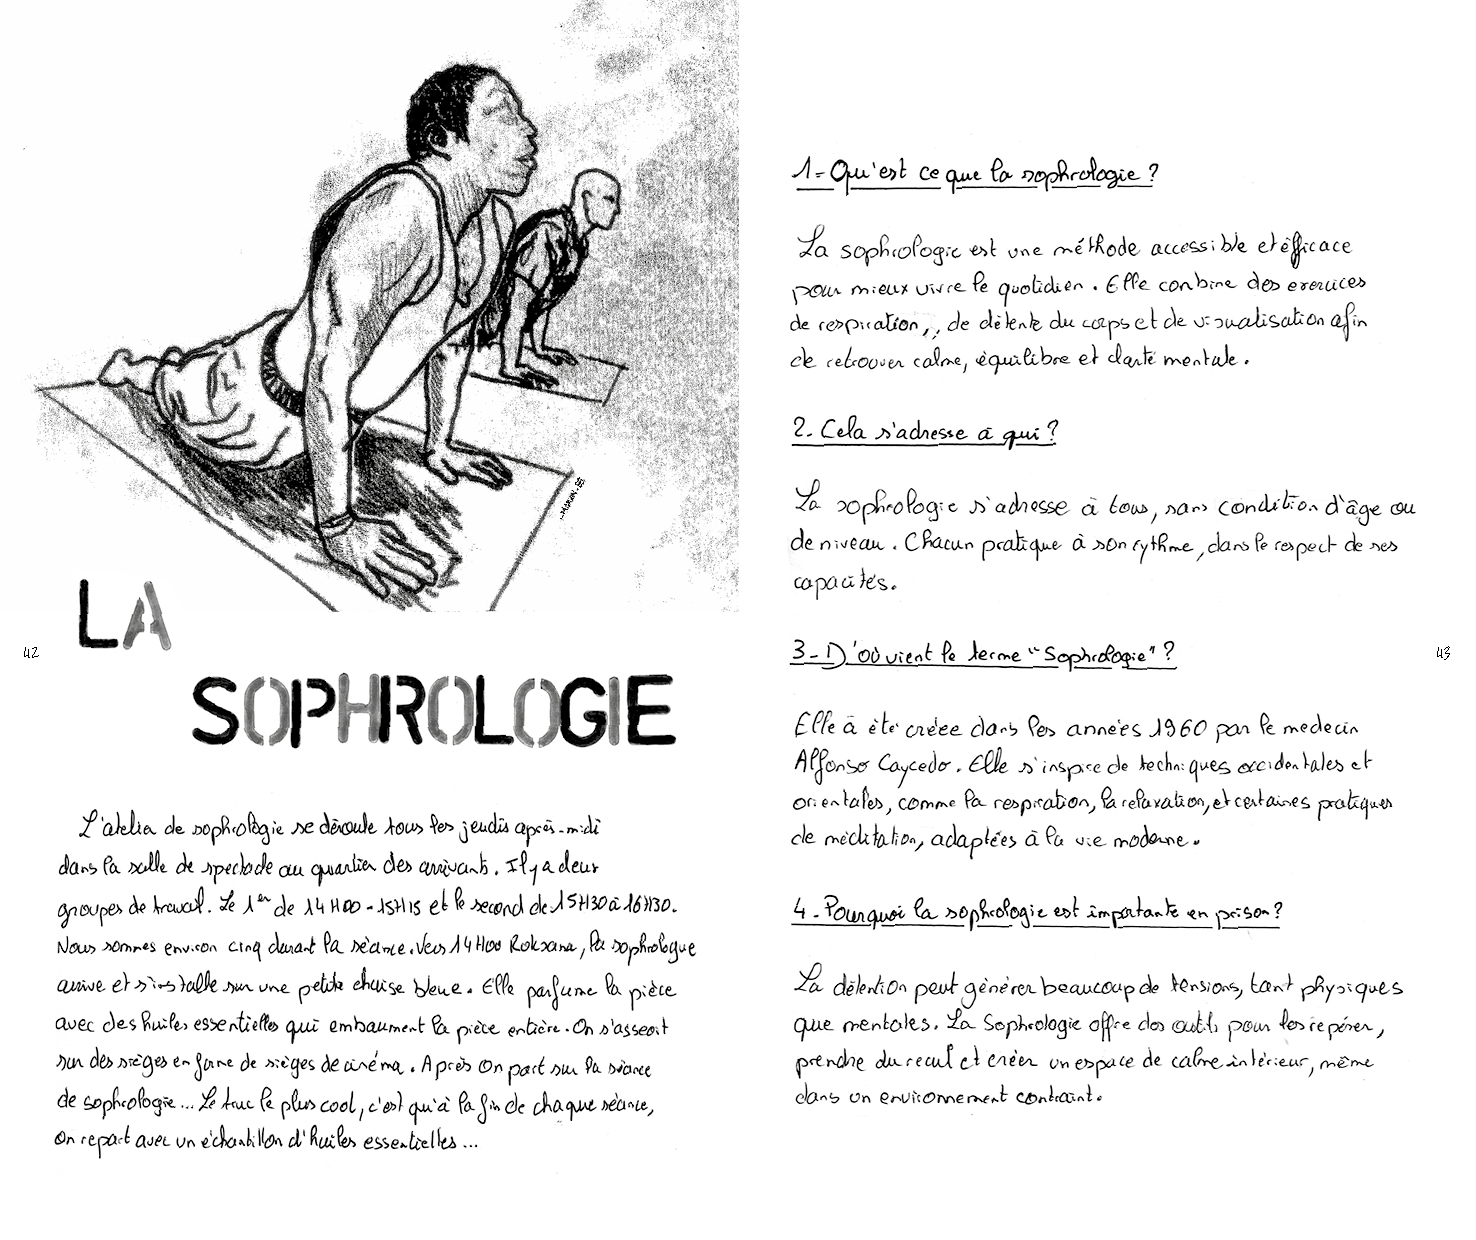 LA
SOPHROLOGIE
L'atelier de sophrologie se déroule tous les jeudis après-midi
dans la salle de spectacle au quartier des arrivants. Il y a deux
groupes de travail. Le 1er de 14H00-15H15 et le second de 15H30 à 16H30.
Nous sommes environ cinq durant la séance. Vers 14H00 Roksana, la sophrologue
arrive et s'installe sur une petite chaise bleue. Elle parfume la pièce
avec des huiles essentielles qui embaument la pièce entière. On s'asseoit
sur des sièges en forme de sièges de cinéma. Après on part sur la séance
de sophrologie... Le truc le plus cool, c'est qu'à la fin de chaque séance,
on repart avec un échantillon d'huiles essentielles...
42
1- Qu'est ce que la sophrologie ?
La sophrologie est une méthode accessible et éfficace
pour mieux vivre le quotidien. Elle conbine des exercices
de respiration,, de détente du corps et de visualisation afin
de retrouver calme, équilibre et clarté mentale.
2. Cela s'adresse à qui ?
La sophrologie s'adresse à tous, sans condition d'âge ou
de niveau. Chacun pratique à son rythme, dans le respect de ses
capacités.
3- D'où vient le terme "Sophrologie" ?
Elle à été créee dans les années 1960 par le medecin
Alfonso Caycedo. Elle s'inspire de techniques occidentales et
orientales, comme la respiration, la relaxation, et certaines pratiques
de méditation, adaptées à la vie moderne.
4- Pourquoi la sophrologie est importante en prison ?
La détention peut générer beaucoup de tensions, tant physiques
que mentales. La Sophrologie offre des outils pour les repérer,
prendre du recul et créer un espace de calme intérieur, même
dans un environnement contraint.
43